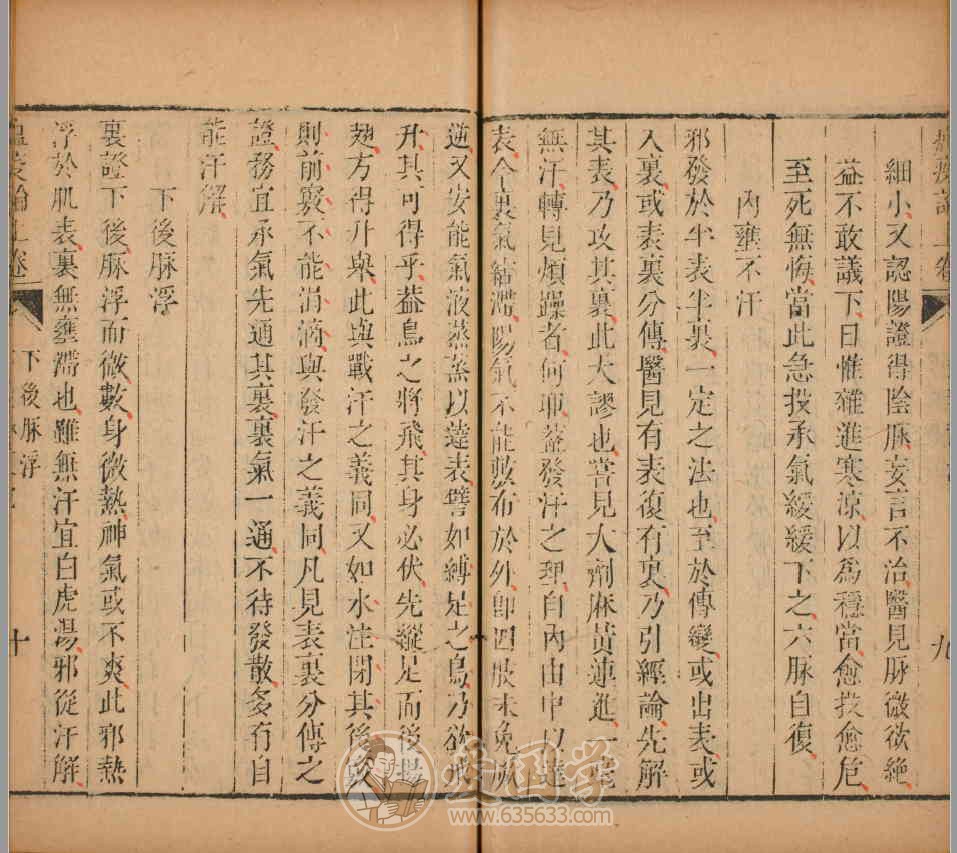 瘟疫論上卷
九
細小又認陽證得陰脉妄言不治醫見脉微欲絶
益不敢議下日惟雜進寒涼以為穩當愈投愈危
至死無悔當此急投承氣緩緩下之六脉自復
內壅不汗
邪發於半表半裏一定之法也至於傳變或出表或
入裏或表裏分傳醫見有表復有裏乃引經論先解
其表乃攻其裏此大謬也嘗見大劑麻黃連進一毫
無汗轉見煩躁者何耶葢發汗之理自內由中以達
表今裏氣結滯陽氣不能敷布於外即四肢未免厥
逆又安能氣液蒸蒸以達表譬如縛足之鳥乃欲飛
升其可得乎葢鳥之將飛其身必伏先縱足而後揚
翅方得升舉此與戰汗之義同又如水注閉其後竅
則前竅不能涓滴與發汗之義同凡見表裏分傳之
證務宜承氣先通其裏裏氣一通不待發散多有自
能汗解
下後脉浮
裏證下後脉浮而微數身微熱神氣或不爽此邪熱
浮於肌表裏無壅滯也雖無汗宜白虎湯邪從汗解
瘟疫論上卷
下後脉浮
十
爱国学
www.635633.com